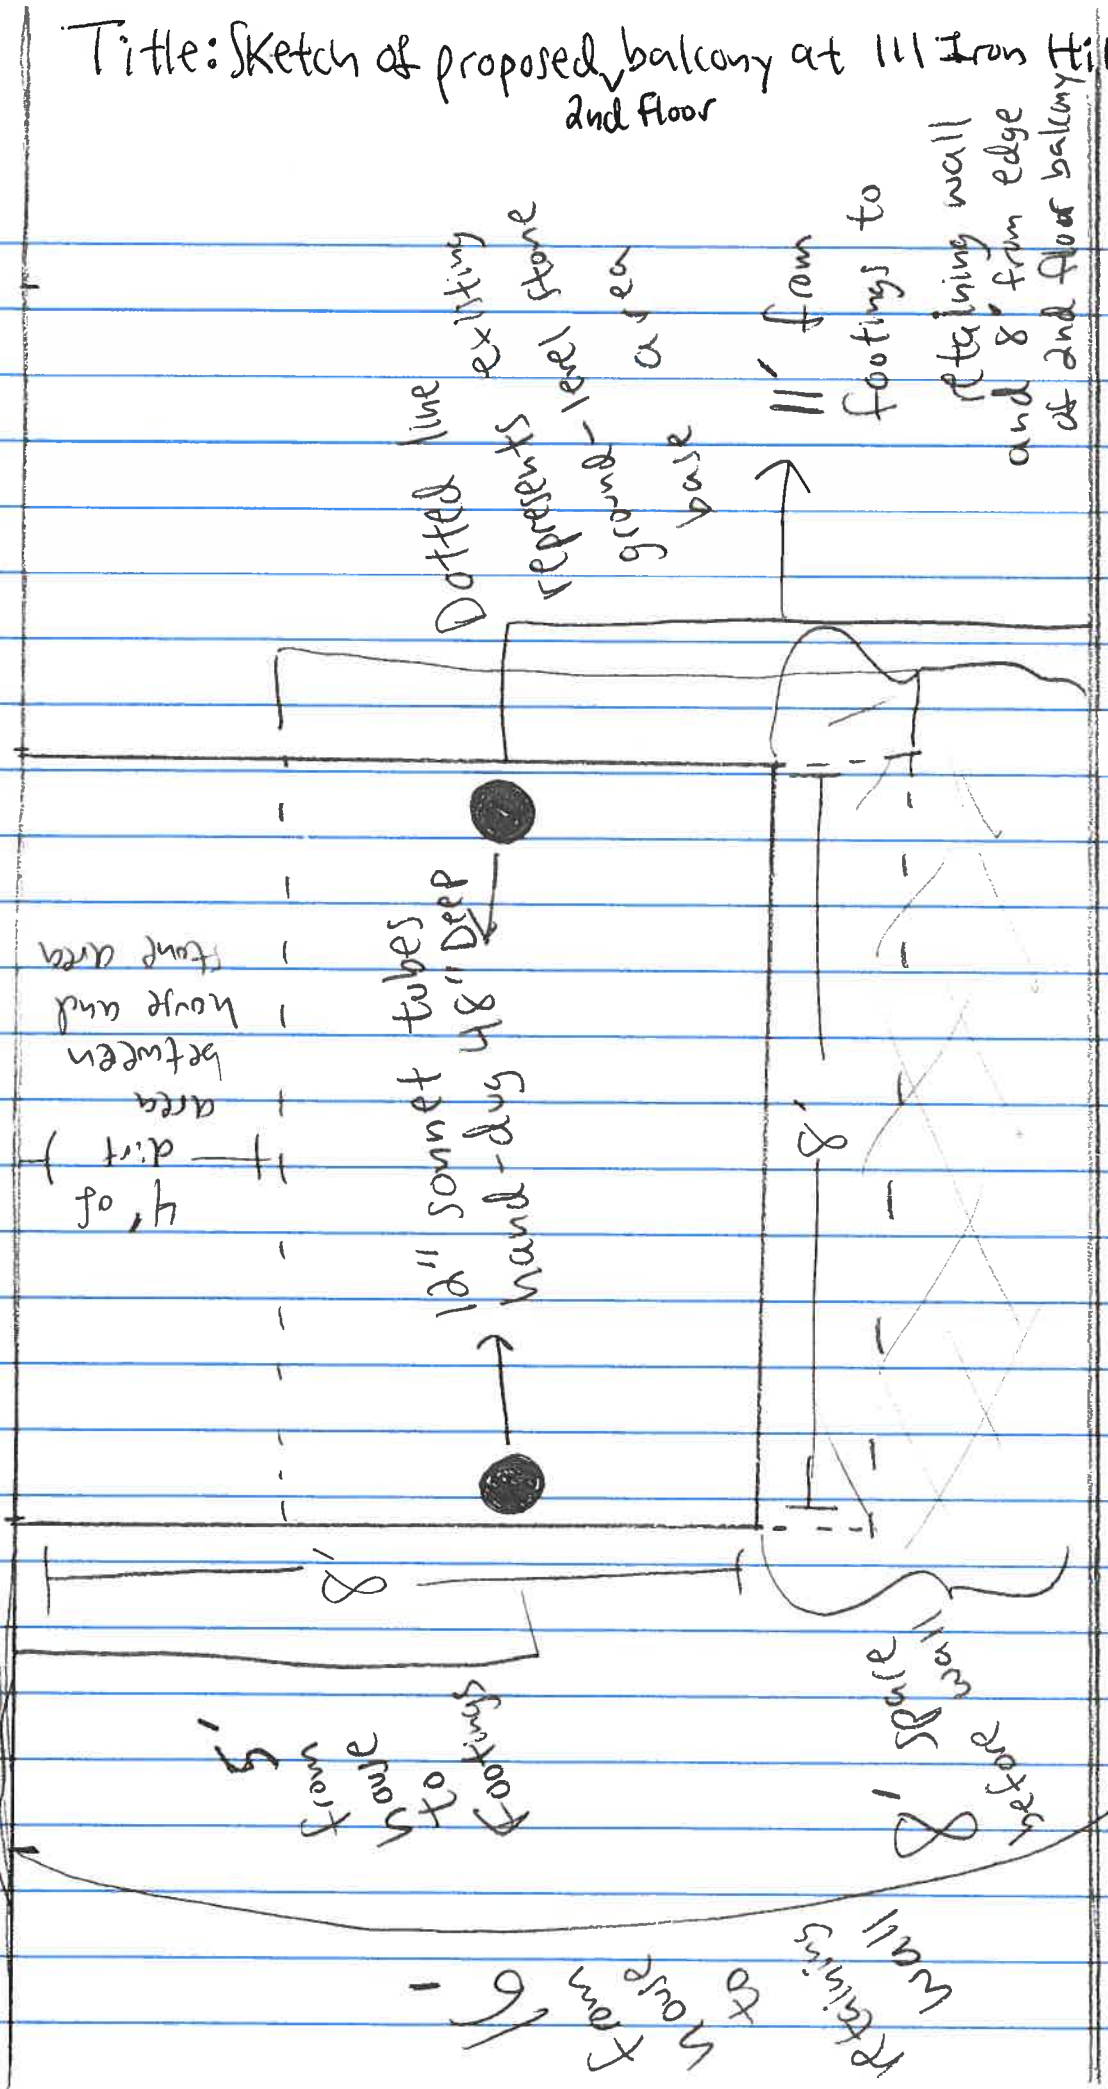 Title: Sketch of proposed balcony at 111 Iron Hil
2nd floor
Dotted line
represents existing
ground-level stone
area
base
11' from
footings to
retaining wall
and 8' from edge
of 2nd floor balcony
4' of
dirt
area
between
house and
stone area
12" sonnet tubes
hand-dug 48" Deep
8'
8'
5'
from
house
to
footings
8' space
before wall
16'
from
house
to
retaining
wall